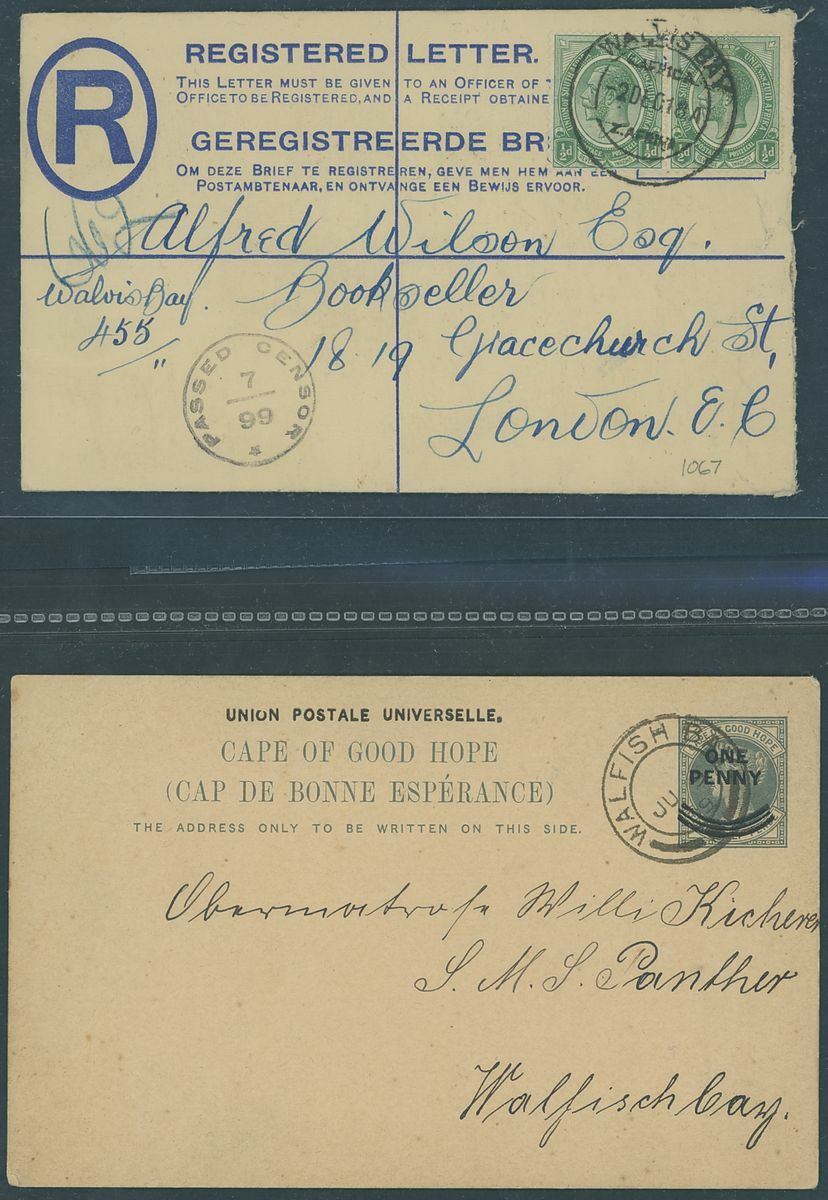 R
REGISTERED LETTER.
THIS LETTER MUST BE GIVEN TO AN OFFICER OF
OFFICE TO BE REGISTERED, AND A RECEIPT OBTAINE
GEREGISTREERDE BR
OM DEZE BRIEF TE REGISTREREN, GEVE MEN HEM AAN EEN
POSTAMBTENAAR, EN ONTVANGE EEN BEWIJS ERVOOR.
½d ½d ½d ½d
Alfred Wilson Esq.
Walvis Bay. Bookseller
455 18 19 Gracechurch St,
London. E. C
PASSED CENSOR
7
99
1067
UNION POSTALE UNIVERSELLE.
CAPE OF GOOD HOPE
(CAP DE BONNE ESPÉRANCE)
THE ADDRESS ONLY TO BE WRITTEN ON THIS SIDE.
GOOD HOPE
ONE
PENNY
WALFISH
JU
Obermatrose Willi Kicherer
S. M. S. Panther
Walfischbay.